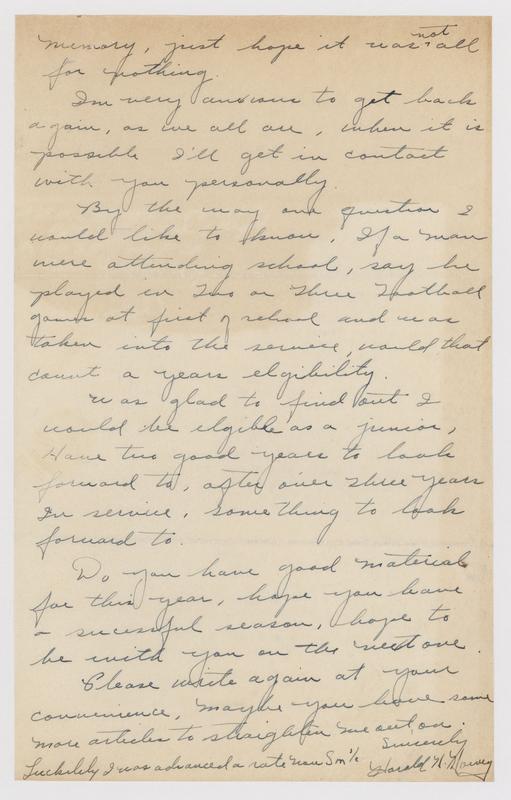 memory, just hope it was not all
for nothing.
I'm very anxious to get back
again, as we all are, when it is
possible I'll get in contact
with you personally.
By the way one question I
would like to know, If a man
were attending school, say he
played in Two or Three Football
games at first of school and was
taken into the service, would that
count a years elgibility.
Was glad to find out I
would be elgible as a junior,
Have two good years to look
forward to, after over three years
In service, something to look
forward to.
Do you have good material
for this year, hope you have
a sucessful season, hope to
be with you on the next one.
Please write again at your
convenience, maybe you have some
more articles to straighten me out on.
Sincerely
Luckilily I was advanced a rate now Sm 1/c Harold H.